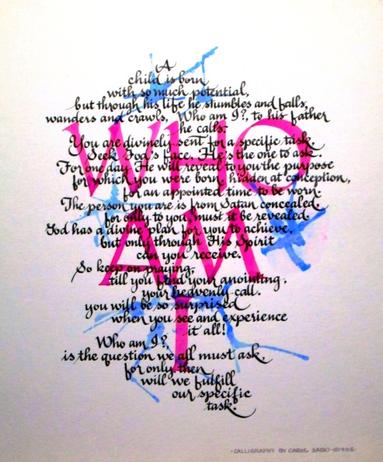 WHO
AM
I
A
child is born
with so much potential,
but through his life he stumbles and falls,
wanders and crawls, Who am I?, to his father
he calls.
You are divinely sent for a specific task.
Seek God's Face. He's the one to ask.
For one day He will reveal to you the purpose
for which you were born, hidden at conception,
for an appointed time to be worn.
The person you are is from Satan concealed.
for only to you must it be revealed.
God has a divine plan for you to achieve,
but only through His Spirit
can you receive.
So keep on praying,
till you find your anointing,
your heavenly call.
you will be so surprised
when you see and experience
it all!
Who am I?
is the question we all must ask
for only then
will we fulfill
our specific
task.
CALLIGRAPHY BY CAROL